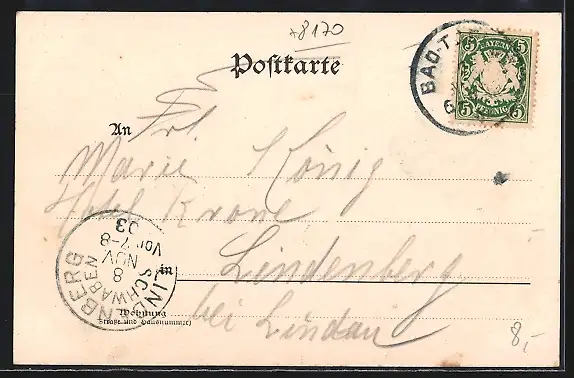 +8170
Postkarte
BAD-T
6
5 BAYERN 5
5 PFENNIG 5
An Frl.
Marie König
Hotel Krone
in Lindenberg
bei Lindau
LINDENBERG
SCHWABEN
8
NOV
Vor. 7-8
03
Wohnung
(Straße und Hausnummer)
8,-